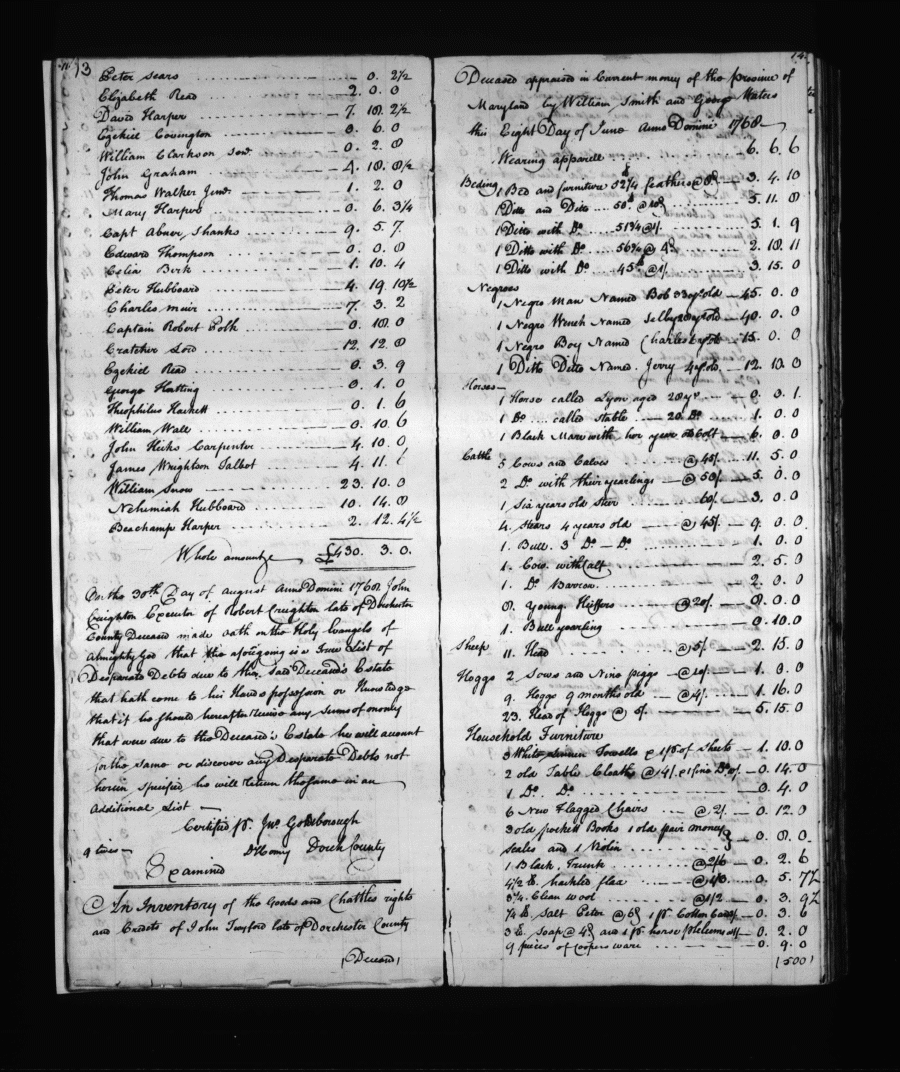 13
Peter Sears 0. 2½
Elizabeth Read 2. 0. 0
David Harper 7. 18. 2½
Ezekiel Covington 0. 6. 0
William Clarkson Senr. 0. 2. 8
John Graham 4. 18. 8½
Thomas Walker Junr. 1. 2. 0
Mary Harper 0. 6. 3¼
Capt Abner Shanks 9. 5. 7.
Edward Thompson 0. 0. 8
Celia Birk 1. 10. 4
Peter Hubboard 4. 19. 10½
Charles muir 7. 3. 2
Captain Robert Polk 0. 18. 0
Cratcher Lord 12. 12. 8
Ezekiel Read 0. 3. 9
George Hatting 0. 1. 0
Theophilus Hackett 0. 1. 6
William Wall 0. 10. 6
John Hicks Carpenter 4. 10. 0
James Wrightson Talbot 4. 11.
William Snow 23. 10. 0
Nehemiah Hubboard 10. 14. 8
Beachamp Harper 2. 12. 4½
Whole amount £430. 3. 0.
On the 30th Day of August Anno Domini 1768 John
Creighton Executor of Robert Creighton late of Dorchester
County Deceased made oath on the Holy Evangels of
Almighty God that the afore going is a True List of
Desparate Debts due to the Said Deceased's Estate
that hath come to his Hands possession or Knowledge
that if he should hereafter receive any Sums of money
that were due to the Deceased's Estate he will account
for the same or discover any Desparate Debts not
herein specified he will return the same in an
Additional List
Certified pr. Jno. Goldsborough
D Comry Dorch County
Examined
An Inventory of the Goods and Chattles rights
and Credits of John Twyford late of Dorchester County
(Deceasd)
14
Deceased appraised in Current money of the province of
Maryland by William Smith and George Waters
this Eight Day of June Anno Domini 1768
Wearing apparell 6. 6. 6
Beding 1 Bed and furniture 52¼ feathers @ 3. 4. 10
1 Ditto and Ditto 50 @ 5. 11. 8
1 Ditto with Do. 51¾ @ 5. 1. 9
1 Ditto with Do. 56¾ @ 2. 18. 11
1 Ditto with Do. 45 @ 1/ 3. 15. 0
Negroes
1 Negro Man Named Bob 33 yrs old 45. 0. 0
1 Negro Wench Named old 40. 0. 0
1 Negro Boy Named Charles old 15. 0. 0
1 Ditto Ditto Named Jerry 4 yr old 12. 10. 0
Horses
1 Horse called Lyon aged 28 yrs 0. 3. 1.
1 Do. called Stable 20 Do. 1. 0. 0
1 Black Mare with her year old Colt 6. 0. 0
Cattle 5 Cows and Calves @ 45/. 11. 5. 0
2 Do. with their yearlings @ 50/. 5. 0. 0
1 Six years old Steer 60/. 3. 0. 0
4. Stears 4 years old @ 45/. 9. 0. 0
1. Bull 3 Do. Do. 1. 0. 0
1. Cow with Calf 2. 5. 0
1. Do. Barren 2. 0. 0
8. Young Heiffers @ 20/. 8. 0. 0
1. Bull yearling 0. 10. 0
Sheep 11. Head @ 5/. 2. 15. 0
Hoggs 2 Sows and Nine piggs 1. 0. 0
9. Hoggs 9 months old @ 4/. 1. 16. 0
23. Head of Hoggs @ 5/. 5. 15. 0
Household Furniture
3 White Linnen Towells & 1 pr. of Sheets 1. 10. 0
2 old Table Cloaths @ 4/. & 1 fine Do. 0. 14. 0
1 Do. Do. 0. 4. 0
6 New Flagged Chairs @ 2/. 0. 12. 0
3 old pockett Books 1 old pair money
Scales and 1 Violin 0. 8. 0
1 Black Trunk @ 2/6 0. 2. 6
4½ lb. hackled flax @ 1/3 0. 5. 7½
3¼. Clean wool @ 1/2 0. 3. 9½
¾ lb. Salt Peter @ 6 1 pr. Cotton Cards 0. 3. 6
3 lb. Soap @ 4 and 1 pr. horse phleems 0. 2. 0
9 pieces of Coopers ware 0. 9. 0
(500)